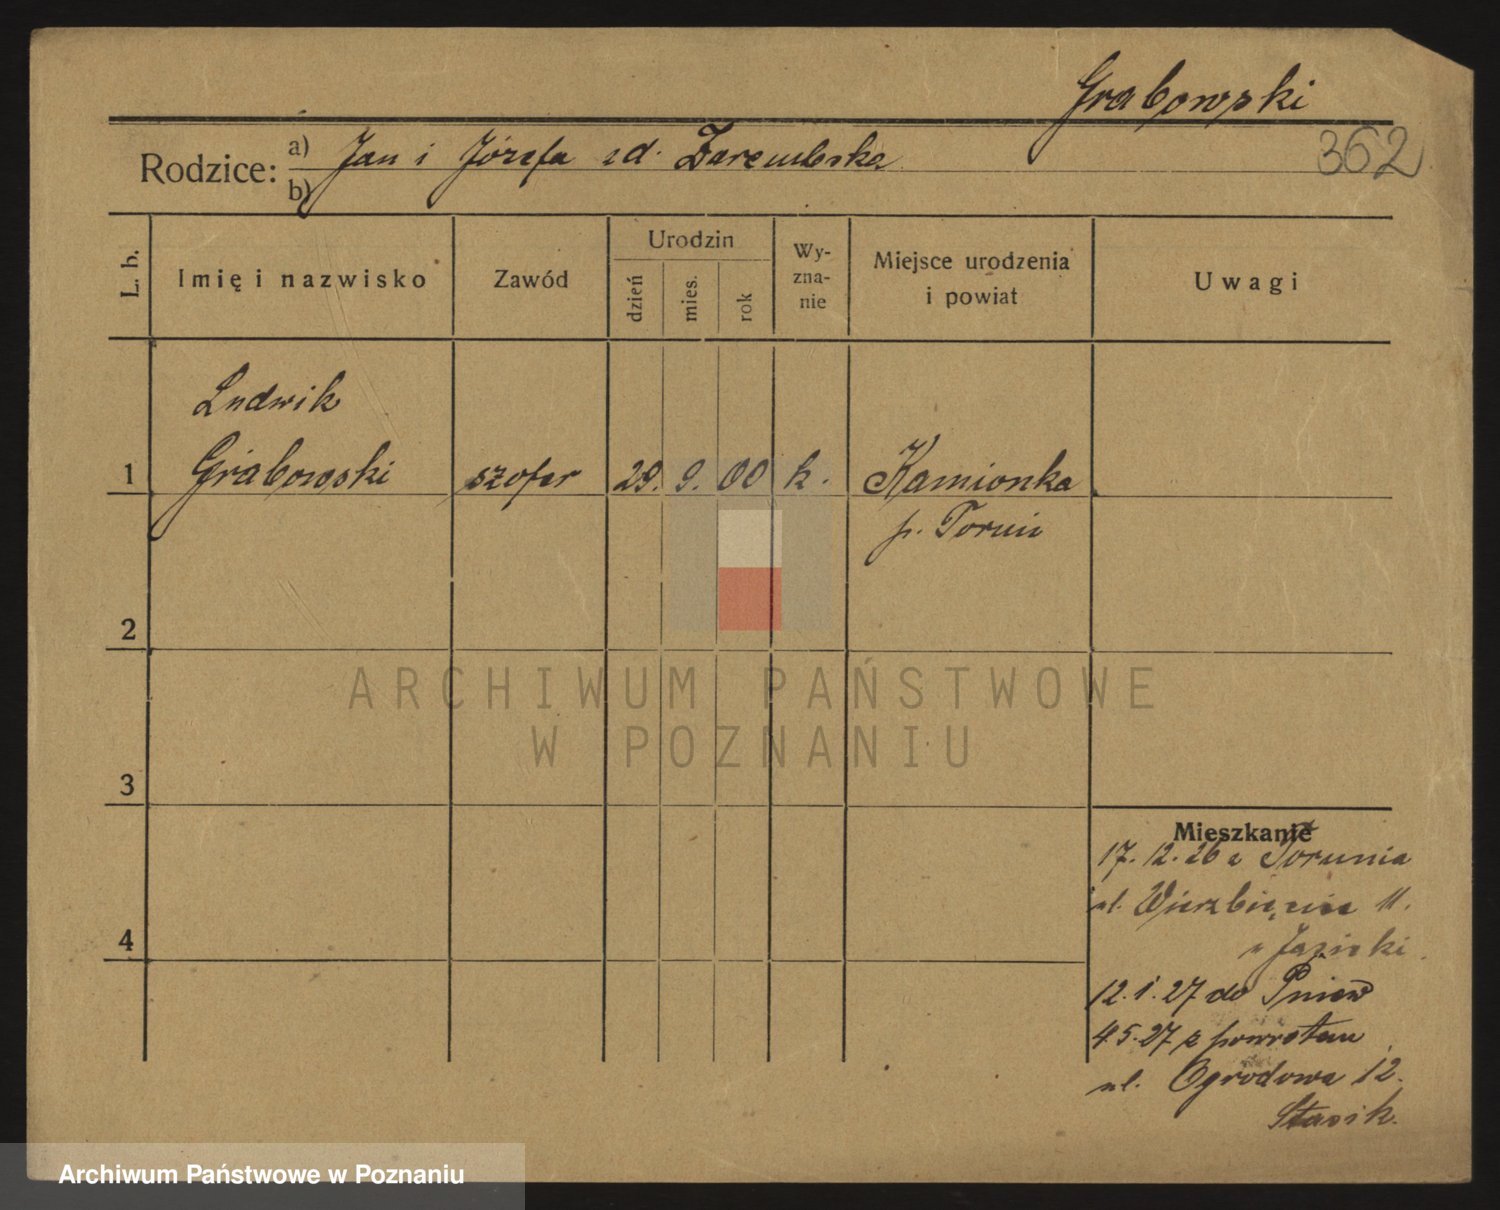 Grabowski
362
Rodzice: a) Jan i Józefa zd. Zarembska
b)
L. b.
Imię i nazwisko
Zawód
Urodzin
dzień
mies.
rok
Wy-
zna-
nie
Miejsce urodzenia
i powiat
Uwagi
Ludwik
1 Grabowski szofer 29. 9. 00 k. Kamionka
p. Toruń
2
3
4
Mieszkanie
17. 12. 26 z Torunia
ul. Wierzbięcice 11.
u
12. 1. 27 do Pniew
4 5. 27 z powrotem
ul. Ogrodowa 12.
Stasik.
ARCHIWUM PAŃSTWOWE
W POZNANIU
Archiwum Państwowe w Poznaniu